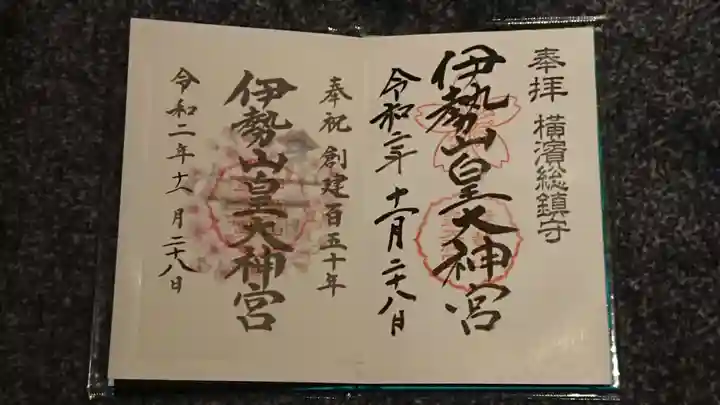 奉拝 横濱総鎮守
伊勢山皇大神宮
令和二年十一月二十八日
奉祝 創建百五十年
伊勢山皇大神宮
令和二年十一月二十八日